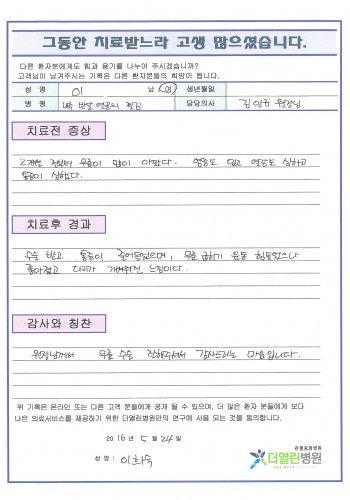 그동안 치료받느라 고생 많으셨습니다.
다른 환자분에게도 힘과 용기를 나누어 주시겠습니까?
고객님이 남겨주시는 기록은 다른 환자분들의 희망이 됩니다.
성 명 이 남 여 생년월일
병 명 연골의 담당의사 김 원장님
치료전 증상
2개월 전부터 무릎이 많이 아팠다. 염증도 있고 열감도 심하고
통증이 심했다.
치료후 경과
수술 받고 통증이 줄어들었으며, 무릎 굽히기 운동 힘들었으나
좋아졌고 다리가 가벼워진 느낌이다.
감사와 칭찬
원장님께서 무릎 수술 잘해주셔서 감사드리는 마음입니다.
위 기록은 온라인 또는 다른 고객 분들에게 공개 될 수 있으며, 더 많은 환자 분들에게 보다
나은 의료서비스를 제공하기 위한 더열린병원만의 연구에 사용 되는 것을 동의합니다.
2016년 5월 24일
성 명 : 이화숙
관절중점병원
더열린병원